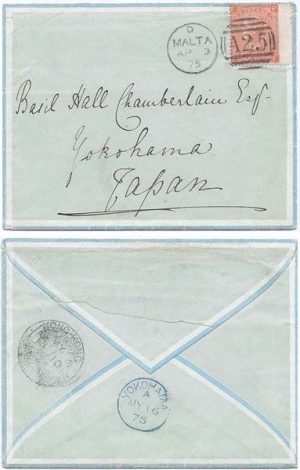 D
MALTA
AP 3
75
A25
Basil Hall Chamberlain Esqr
Yokohama
Japan
HONG KONG
YOKOHAMA
A
MY 16
75